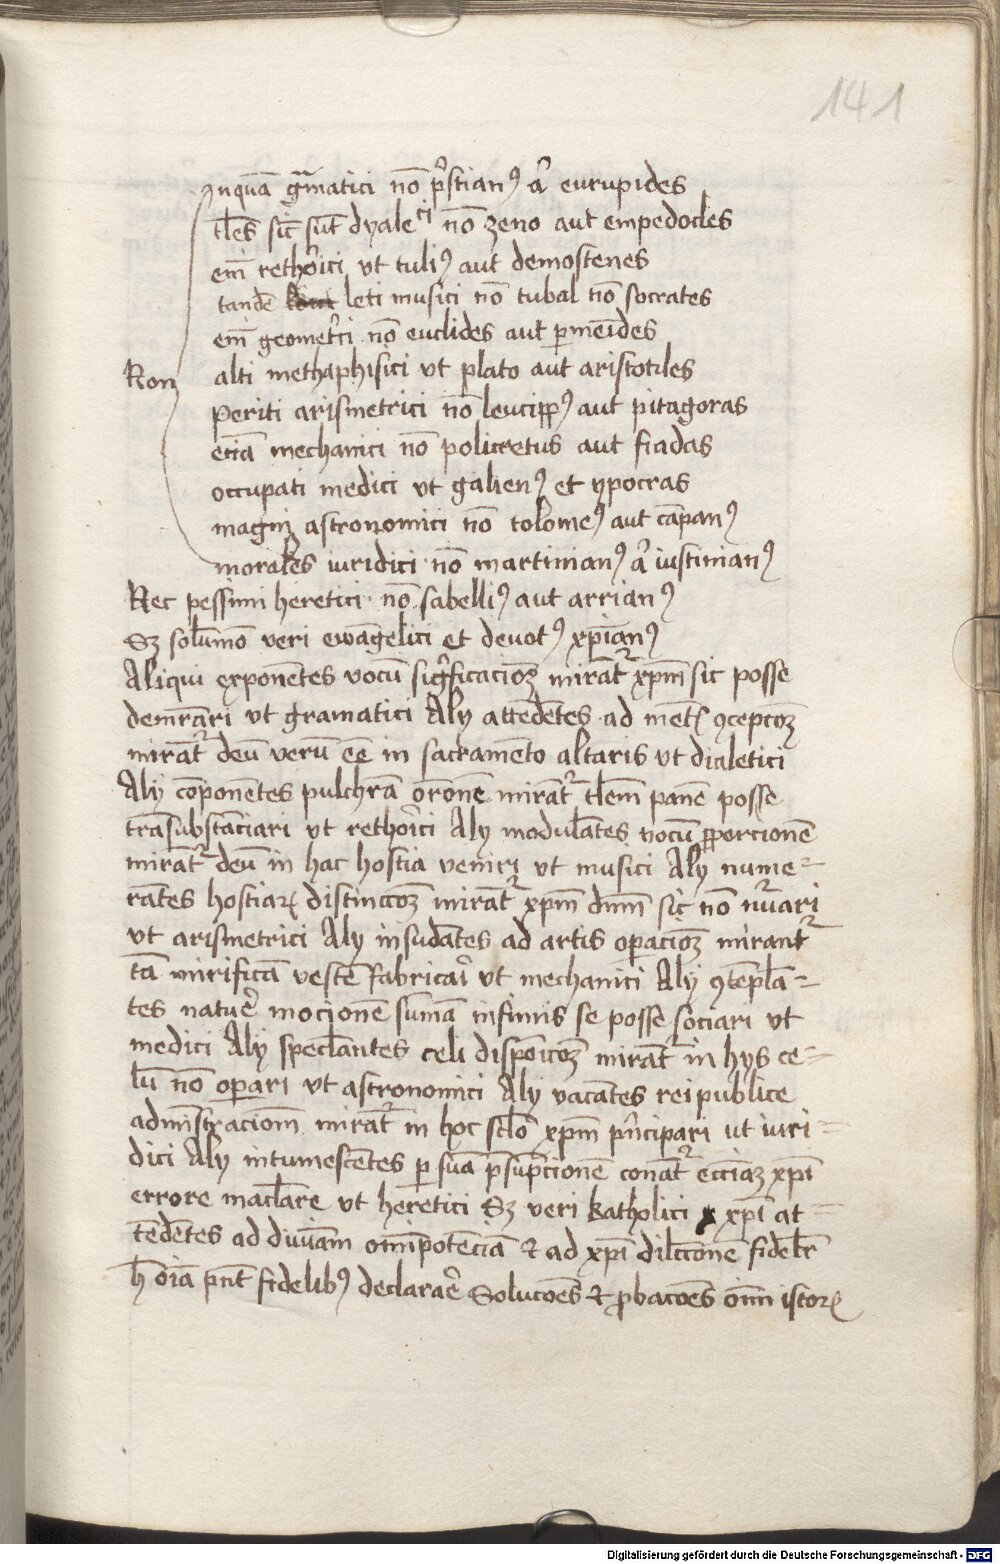 141
Inquā grāmatici nō p̄stianꝰ aut eurupides
tles sic sūt dyaleci nō zeno aut empedocles
em̄ rethorici vt tuliꝰ aut demostenes
tandē leti musici nō tubal nō socrates
em̄ geometrici nō euclides aut permeīdes
Non alti methaphisici vt plato aut aristotiles
periti arismetrici nō leucippꝰ aut pitagoras
eciā mechanici nō policretus aut fiadas
occupati medici vt galienꝰ et ypocras
magni astronomici nō tolomeꝰ aut cāpanꝰ
morales iuridici nō martinianꝰ aut iustinianꝰ
Nec pessimi heretici nō sabelliꝰ aut arrianꝰ
Sꝫ solūmō veri ewāgelici et deuotꝰ xp̄ianꝰ
Aliqui exponētes vocū significacioēꝫ mirāt xp̄m sic posse
demrāri vt gramatici Aly attēdētes ad mētꝭ ꝯcepcōeꝫ
mirāt deū verū eē in sacramēto altaris vt dialetici
Aly cōponētes pulchrā orōnē mirāt tlem panē posse
trāsubstāciari vt rethorici Aly modulātes vocū ꝓporcionē
mirāt deū in hac hostia veniri vt musici Aly nume-
rātes hostiaꝝ distinccōeꝫ mirāt xp̄m dnm̄ sic nō nūari
vt arismetrici Aly insudātes ad artis operacioēꝫ mirant
tā mirificā vestē fabricari vt mechanici Aly ꝯtēplā-
tes nature mocionē sūmā infimis se posse sociari vt
medici Aly speclantes celi disposicōeꝫ mirāt in hys ce-
lū nō operari vt astronomici Aly vacātes rei publice
admīstracionē mirāt in hoc sclō xp̄m p̄ncipari ut iuri-
dici Aly intumescētes per suā p̄supcionē conāt eccīaꝫ xp̄i
errore maclare vt heretici Sꝫ veri katholici xp̄i at-
tēdētes ad diuīam omīpotēciā et ad xp̄i dilccōnē fidelr̄
h̄ oīa pn̄t fidelibꝰ declarare Solucōes et ꝓbacōes oīm istoꝝ
Digitalisierung gefördert durch die Deutsche Forschungsgemeinschaft - DFG